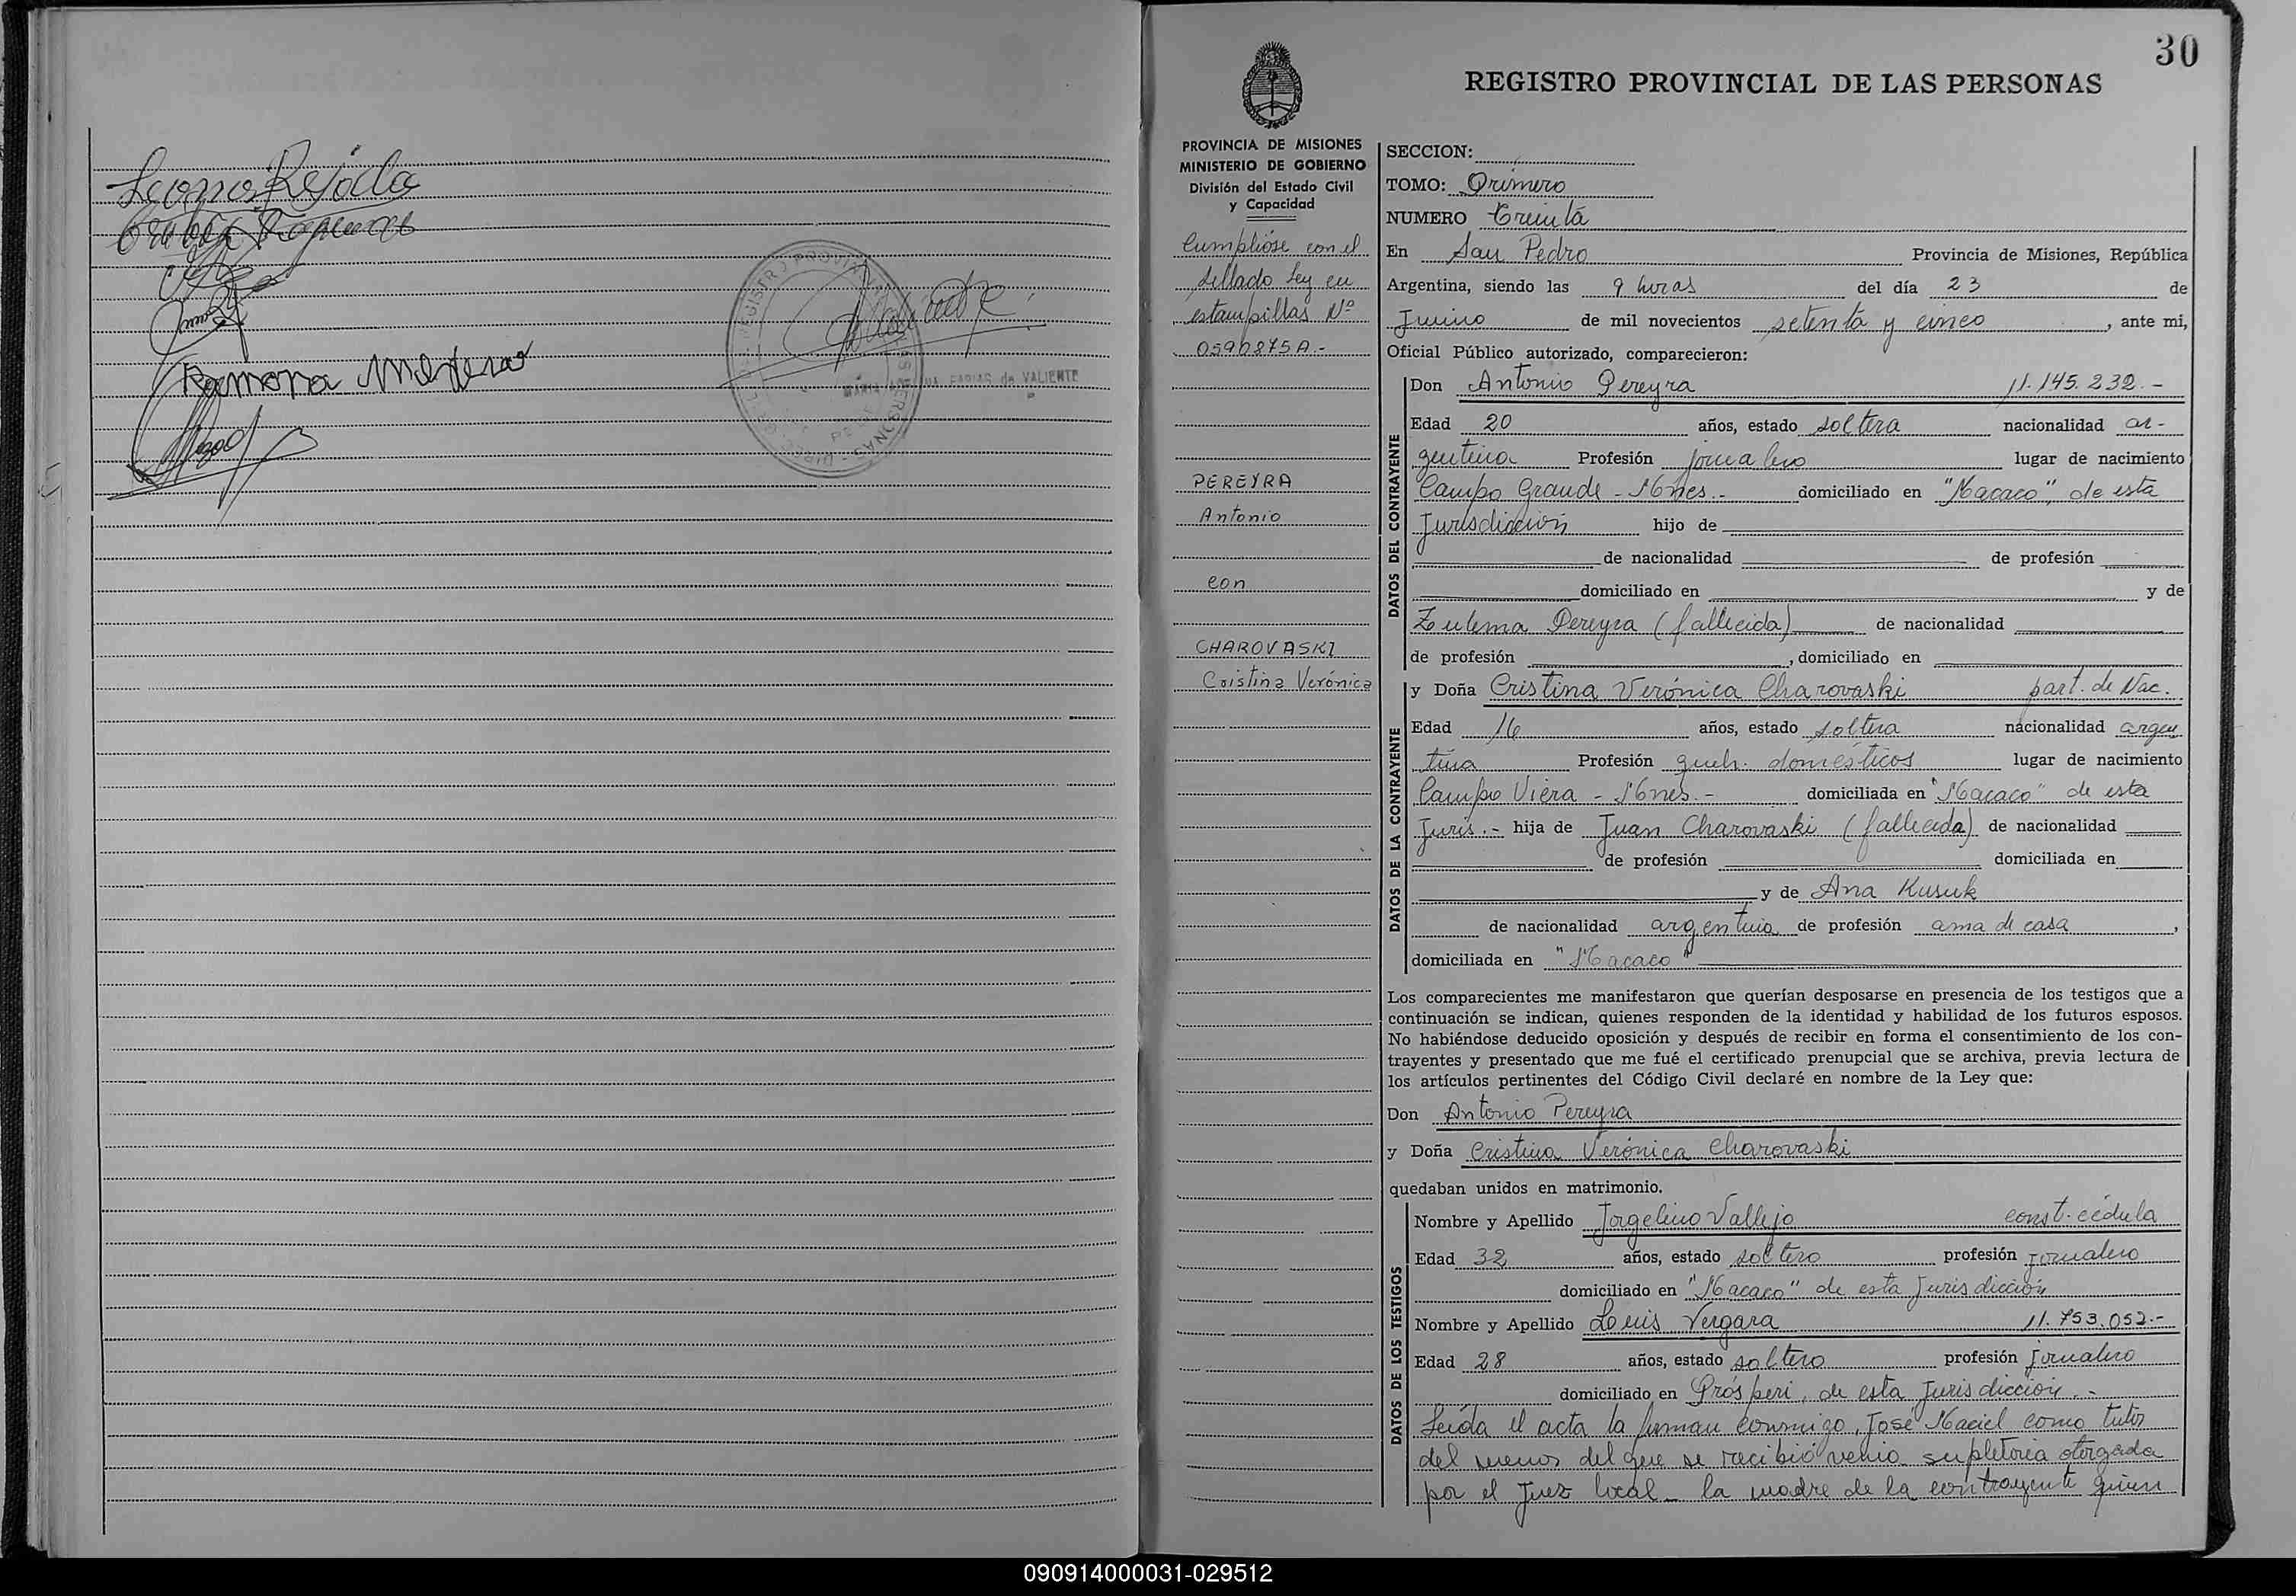 Ramona
MARIA
FARIAS de VALIENTE
30
REGISTRO PROVINCIAL DE LAS PERSONAS
PROVINCIA DE MISIONES
MINISTERIO DE GOBIERNO
División del Estado Civil
y Capacidad
Cumplióse con el
sellado Ley en
estampillas Nº
0590875A.-
PEREYRA
Antonio
con
CHAROVASKI
Cristina Verónica
SECCION:
TOMO: Primero
NUMERO Treinta
En San Pedro Provincia de Misiones, República
Argentina, siendo las 9 horas del día 23 de
Junio de mil novecientos setenta y cinco, ante mi,
Oficial Público autorizado, comparecieron:
DATOS DEL CONTRAYENTE
Don Antonio Pereyra 11.145.232.-
Edad 20 años, estado soltera nacionalidad ar-
gentina Profesión jornalero lugar de nacimiento
Campo Grande - Mnes.- domiciliado en "Macaco", de esta
Jurisdicción hijo de
de nacionalidad de profesión
domiciliado en y de
Zulema Pereyra (fallecida) de nacionalidad
de profesión , domiciliado en
DATOS DE LA CONTRAYENTE
y Doña Cristina Verónica Charovaski part. de Nac.
Edad 16 años, estado soltera nacionalidad argen
tina Profesión queh. domésticos lugar de nacimiento
Campo Viera - Mnes.- domiciliada en "Macaco" de esta
Juris.- hija de Juan Charovaski (fallecida) de nacionalidad
de profesión domiciliada en
y de Ana Kusuk
de nacionalidad argentina de profesión ama de casa,
domiciliada en "Macaco"
Los comparecientes me manifestaron que querían desposarse en presencia de los testigos que a
continuación se indican, quienes responden de la identidad y habilidad de los futuros esposos.
No habiéndose deducido oposición y después de recibir en forma el consentimiento de los con-
trayentes y presentado que me fué el certificado prenupcial que se archiva, previa lectura de
los artículos pertinentes del Código Civil declaré en nombre de la Ley que:
Don Antonio Pereyra
y Doña Cristina Verónica Charovaski
quedaban unidos en matrimonio.
DATOS DE LOS TESTIGOS
Nombre y Apellido Jorgelino Vallejo const. cédula
Edad 32 años, estado soltero profesión jornalero
domiciliado en "Macaco" de esta Jurisdicción
Nombre y Apellido Luis Vergara 11.753.052.-
Edad 28 años, estado soltero profesión jornalero
domiciliado en Prósperi, de esta Jurisdicción.-
Leída el acta la firman conmigo, José Maciel como tutor
del menor del que se recibió venia supletoria otorgada
por el Juez local - la madre de la contrayente quien
090914000031-029512